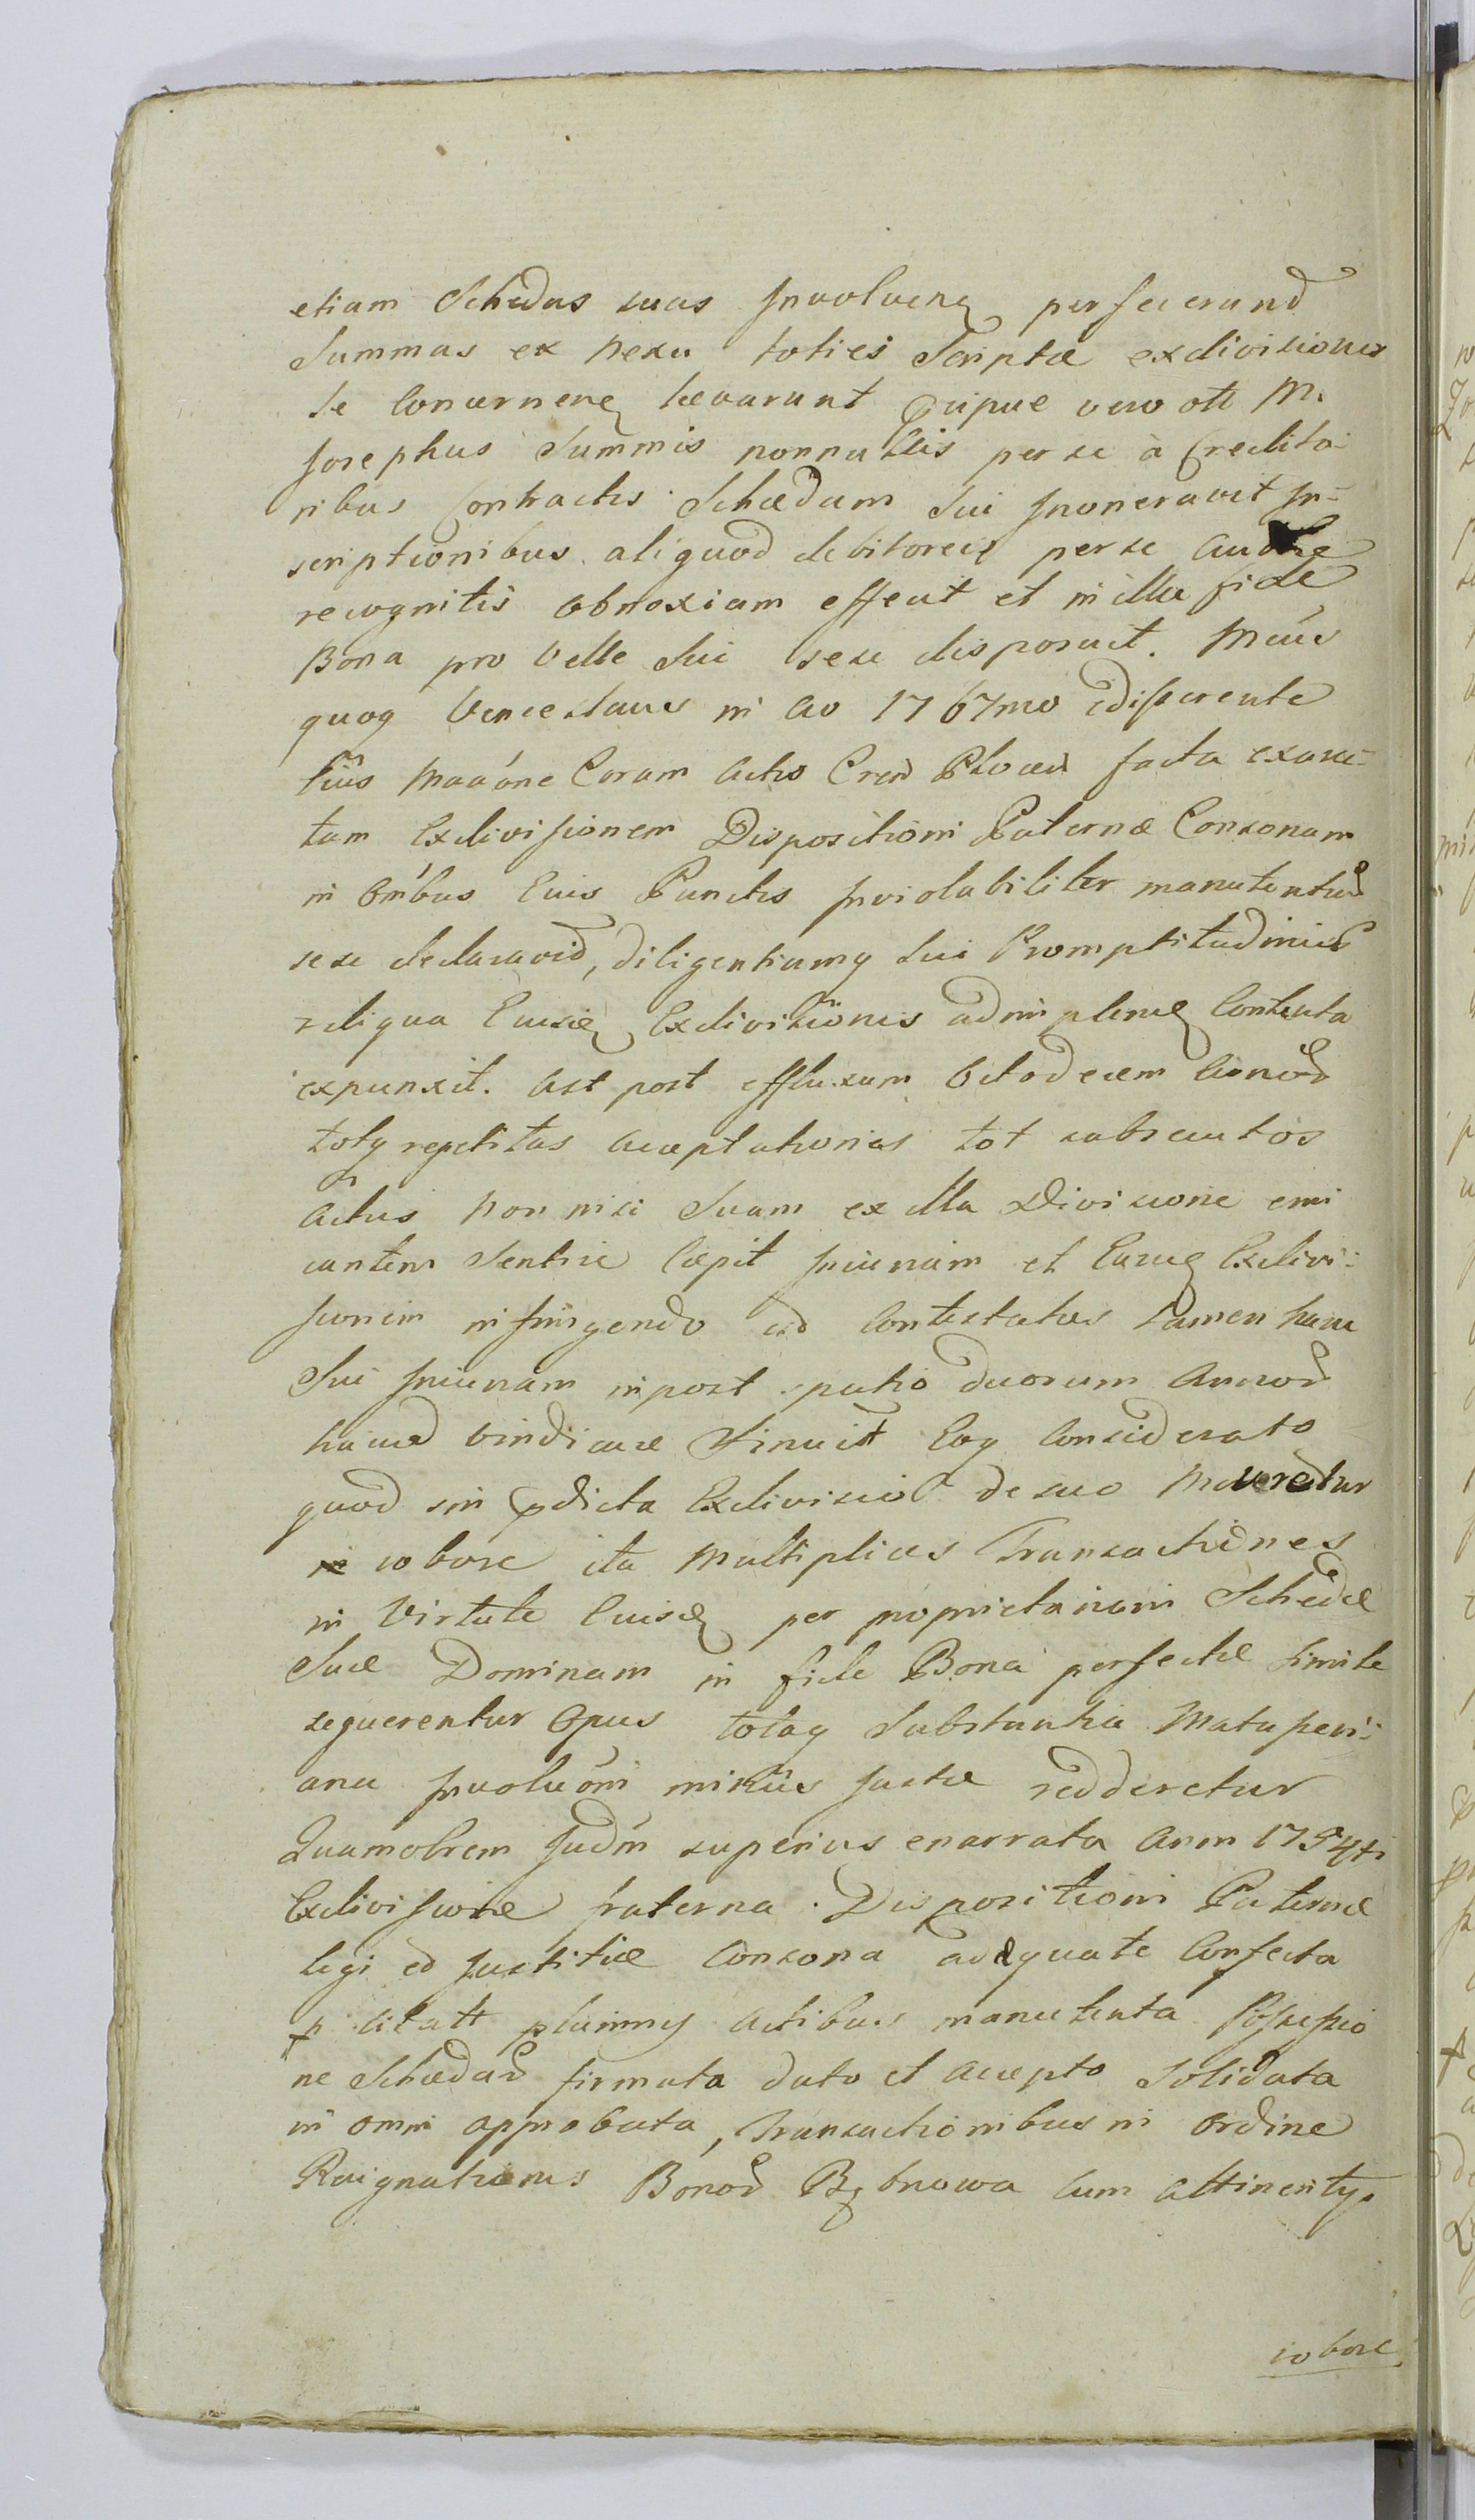 etiam Schedas suas Involven perfecerund
Summas ex nexu toties Scriptæ exdivisiones
se Concernen levarunt vero M.
Josephus Summis nonnullis per se à Credito-
ribus Contractis Schædam Sui Inoneravit In-
scriptionibus aliquod debitoreis per se
recognitis obnoxiam effecit et in illa fide
Bona pro Velle Sui sese disposuit. Mcus
quoq Venceslaus in Ao 1767mo
Coram Actis facta exare-
tam Exdivisionem Dispositioni Paternæ Consonam
in Omibus Eius Punctis Inviolabiliter manutentur
sese declaravid, diligentiamq Sui Promptitudinis
reliqua Eiusd Exdivisionis adimplere Contenta
expunxit. Ast post effluxum Octodecem Annod
totq repetitas acceptationes tot subsecutos
Actus non nisi Suam ex illa Divisione emi
cantem Sentire Cœpit Iniuriam et Eand Exdivi-
sionem infringendo ad Contestatus tamen hanc
Sui Iniuriam inpost spatio duorum Annod
haud vindicare Eoq Considerato
quod sin pdicta Exdivisio de suo Moveretur
robore ita Multiplices Transactiones
in Virtute Eiusd per proprietariam Schedæ
Suæ Dominam in fide Bona perfectæ simile
sequerentur Opus totaq Substantia
ana Involuoni factæ redderetur
Quamobrem Judm superius enarrata Anni 1754ti
Exdivisione fraterna Dispositioni Paternæ
legi ed Justitiæ Consona adæquate Confecta
p citatt plurimis Actibus manutenta Possessio
ne Schædad firmata dato et accepto Solidata
in omni approbata, Transactionibus in Ordine
Resignationis Bonod cum attinentys
robore